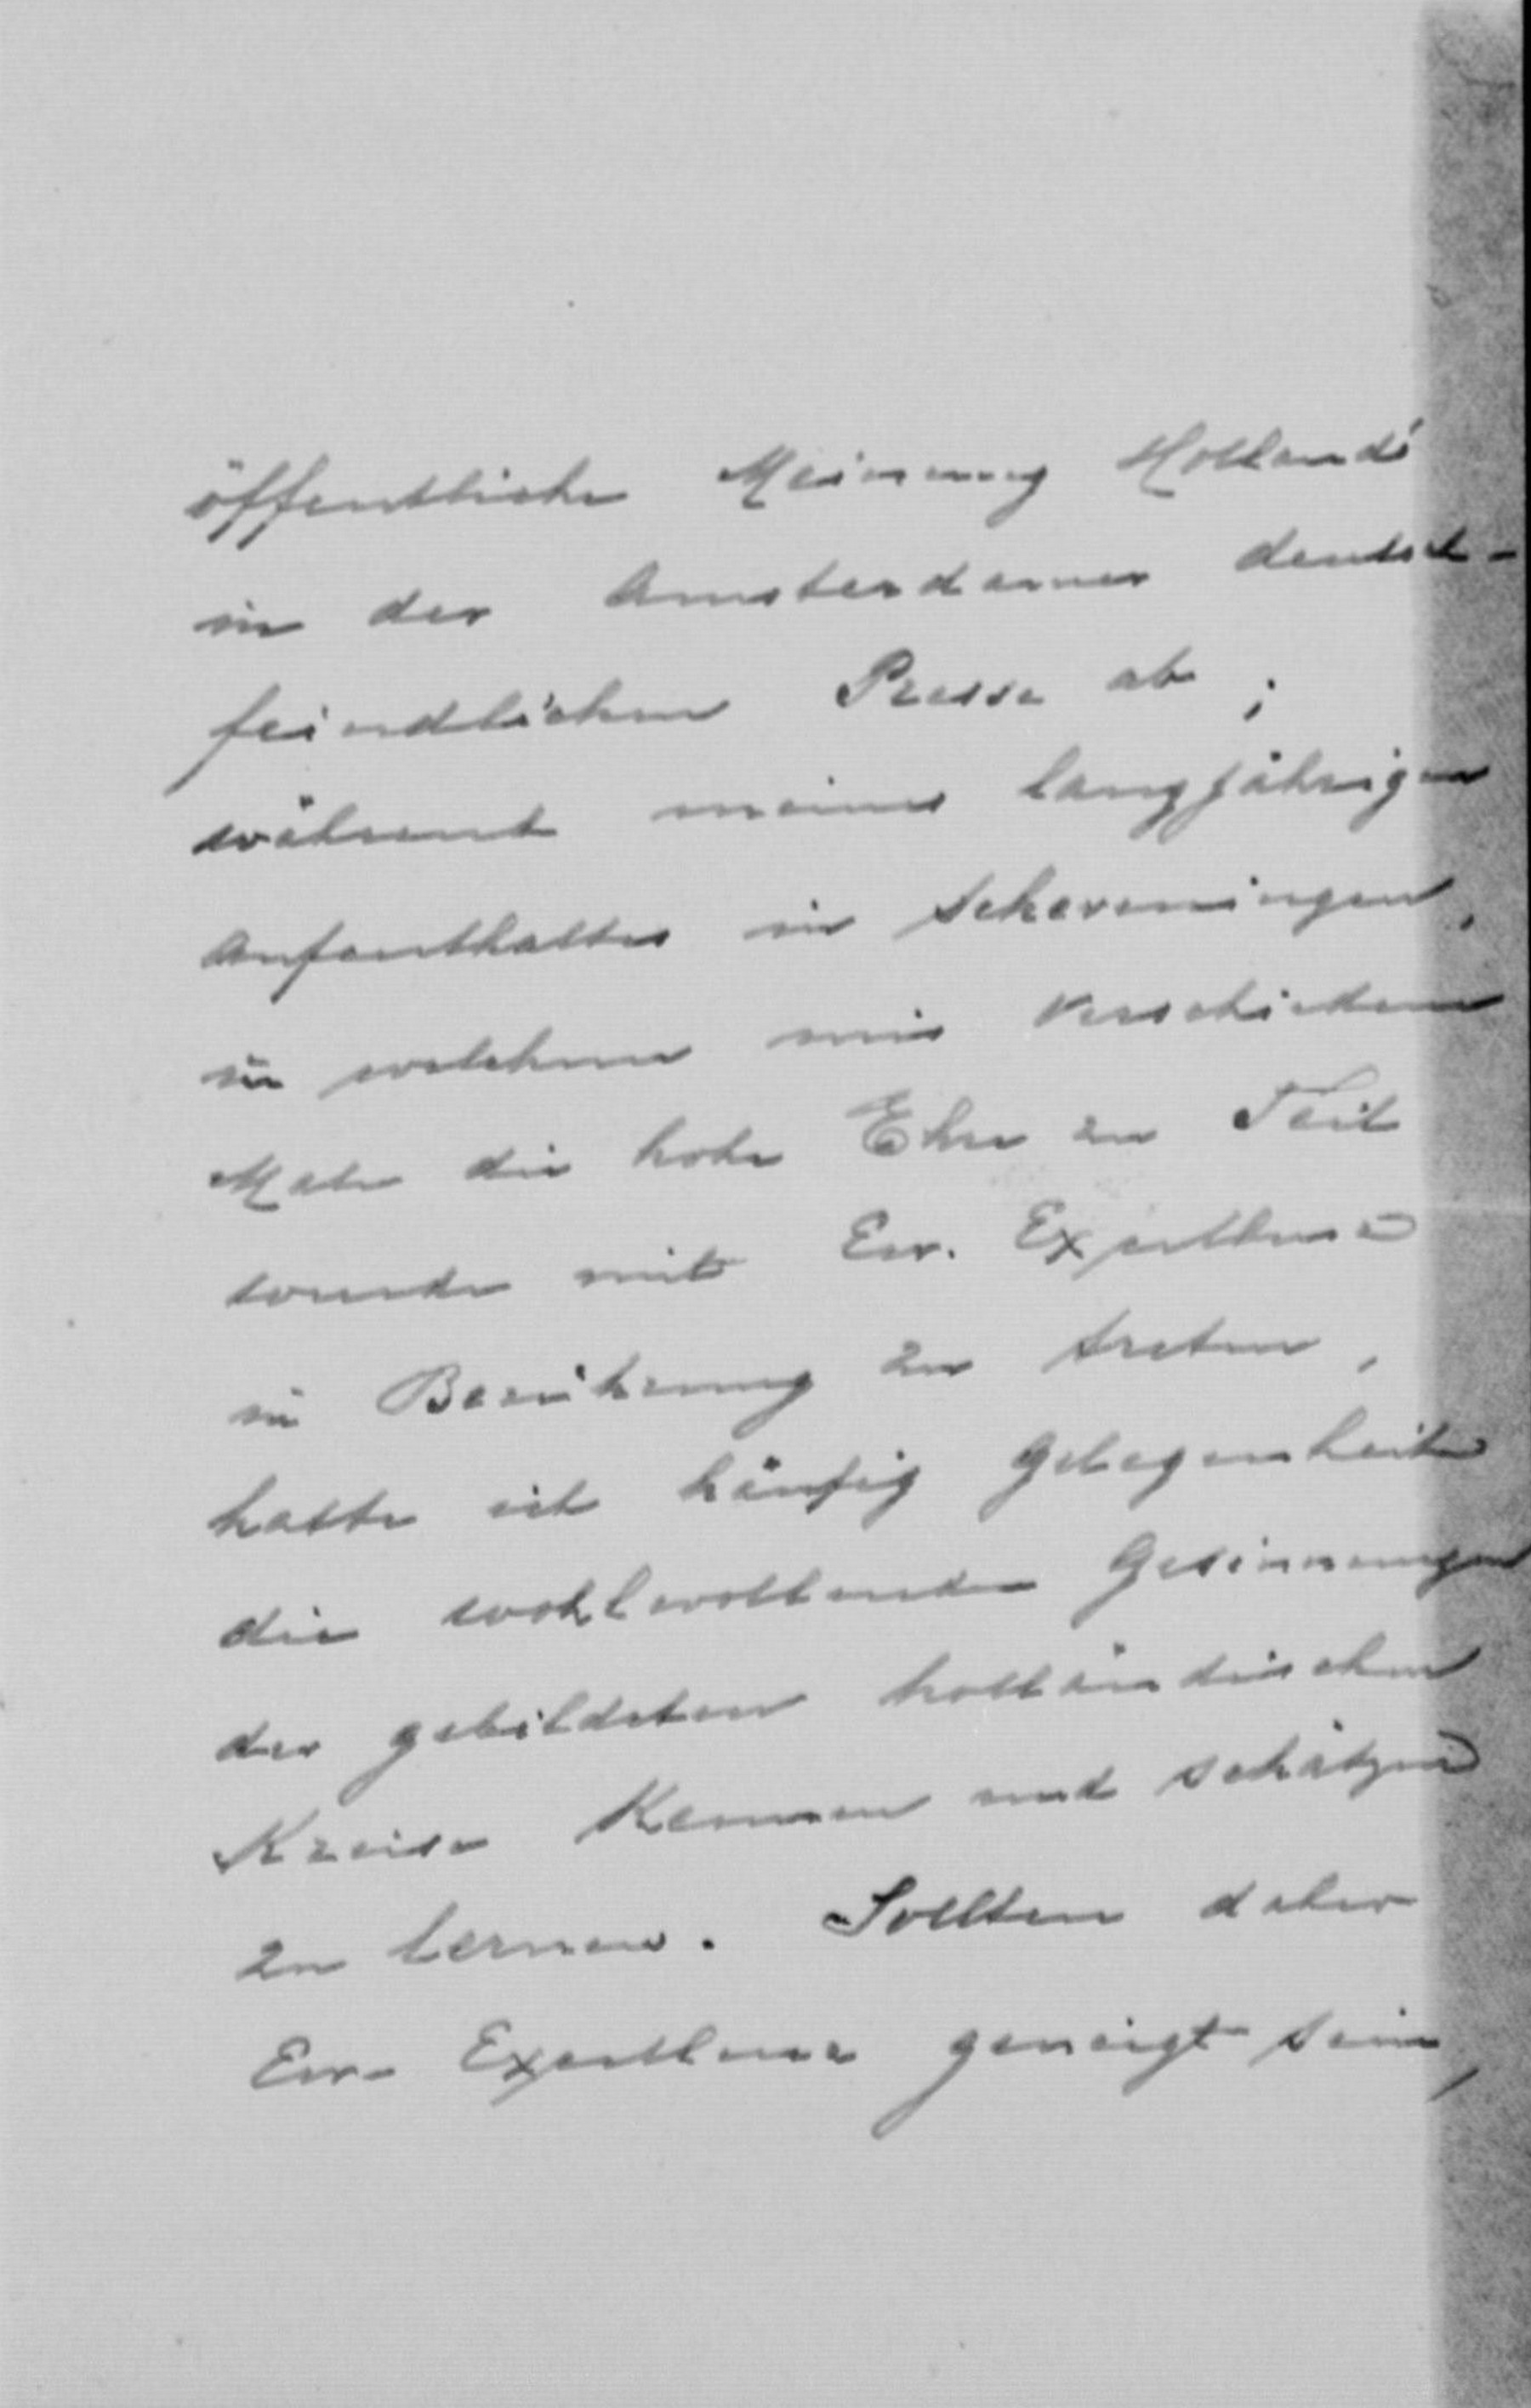 öffentliche Meinung Holland's
in der Amsterdamer deutsch-
feindlichen Presse ab;
während meines langjährigen
Aufenthaltes in Scheveningen,
in welchem mir verschiedene
Male die hohe Ehre zu Teil
wurde mit Ew. Excellenz
in Berührung zu treten,
hatte ich häufig Gelegenheit
die wohlwollenden Gesinnungen
der gebildeten holländischen
Kreise kennen und schätzen
zu lernen. Sollten daher
Ew. Excellenz geneigt sein,